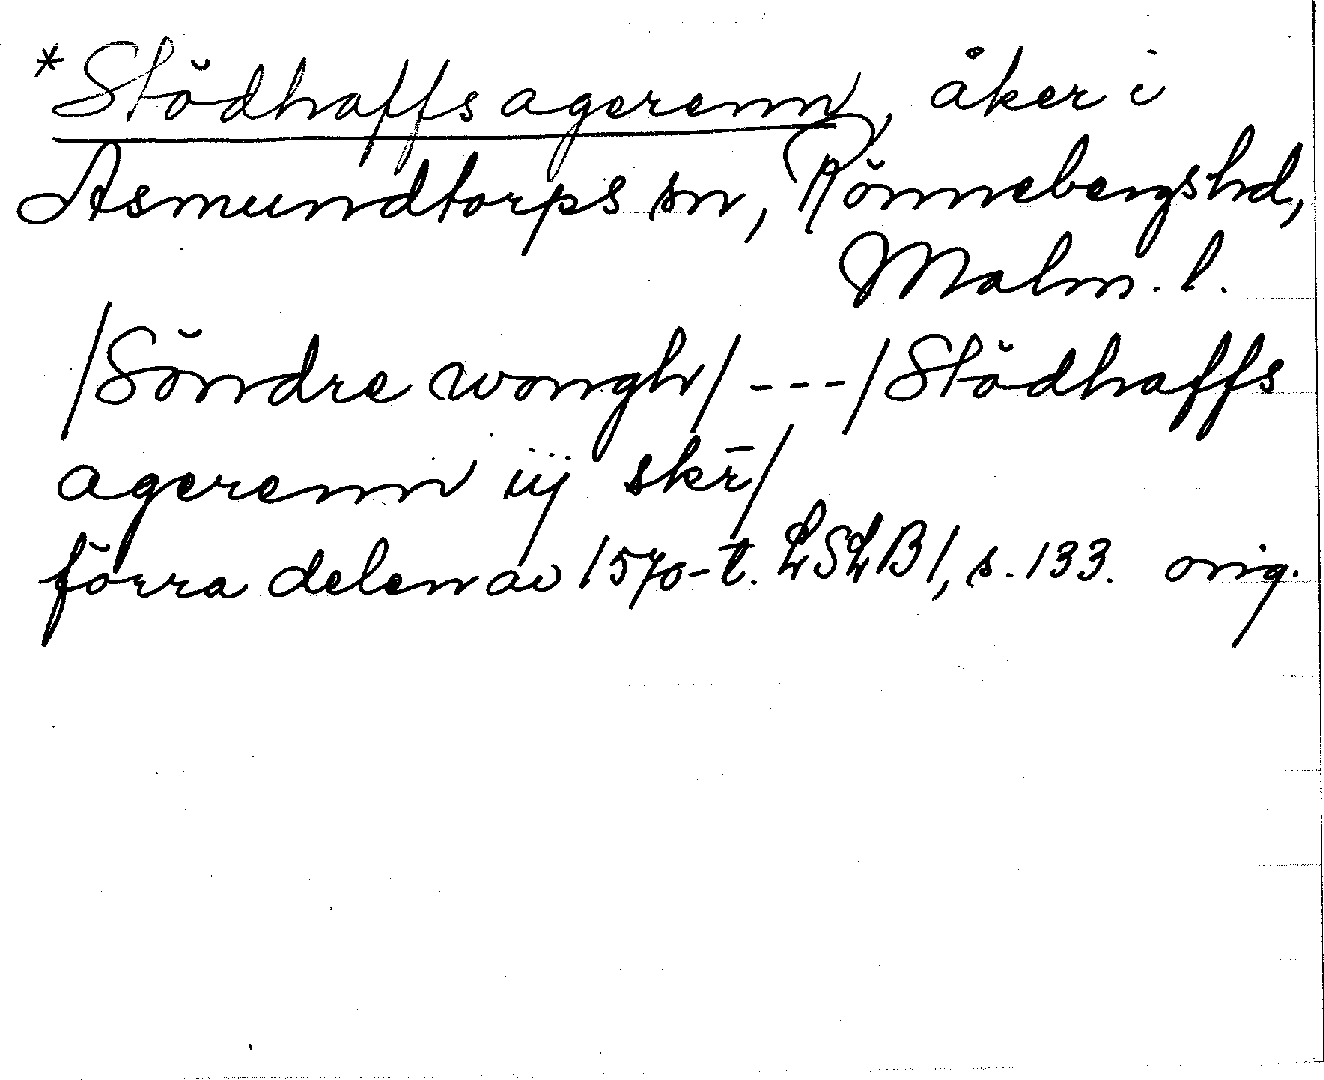 *Stödhaffs agerenn, åker i
Asmundtorps sn, Rönnebergs hd,
Malm. l.
/Söndre wongh/ --- /Stödhaffs
agerenn iij skr̄/
förra delen av 1570-t. LSLB1, s. 133. orig.